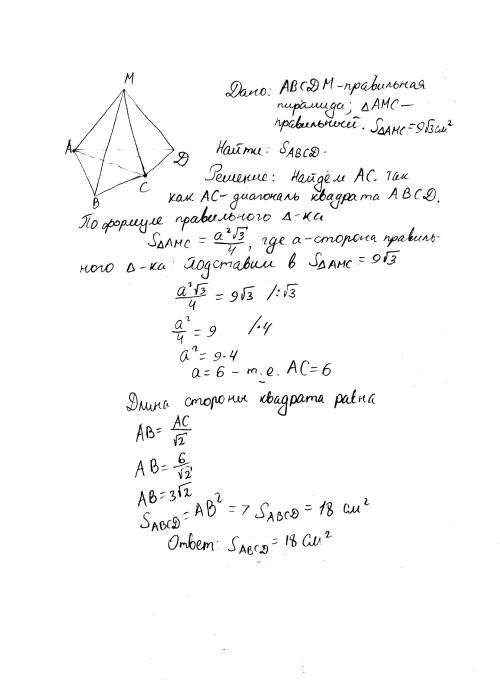 M
A
D
C
B
Дано: ABCDM-правильная
пирамида; △AMC—
правильный. S△AMC=9√3см²
Найти: SABCD.
Решение: Найдём AC. Так
как AC- диагональ квадрата ABCD.
По формуле правильного △-ка
S△AMC = a²√3/4, где a-сторона правиль-
ного △-ка. Подставим в S△AMC = 9√3
a²√3/4 = 9√3 /:√3
a²/4 = 9 /·4
a² = 9·4
a = 6 – т.е. AC = 6
Длина стороны квадрата равна
AB = AC/√2
AB = 6/√2
AB = 3√2
SABCD = AB² => SABCD = 18 см²
Ответ: SABCD = 18 см²